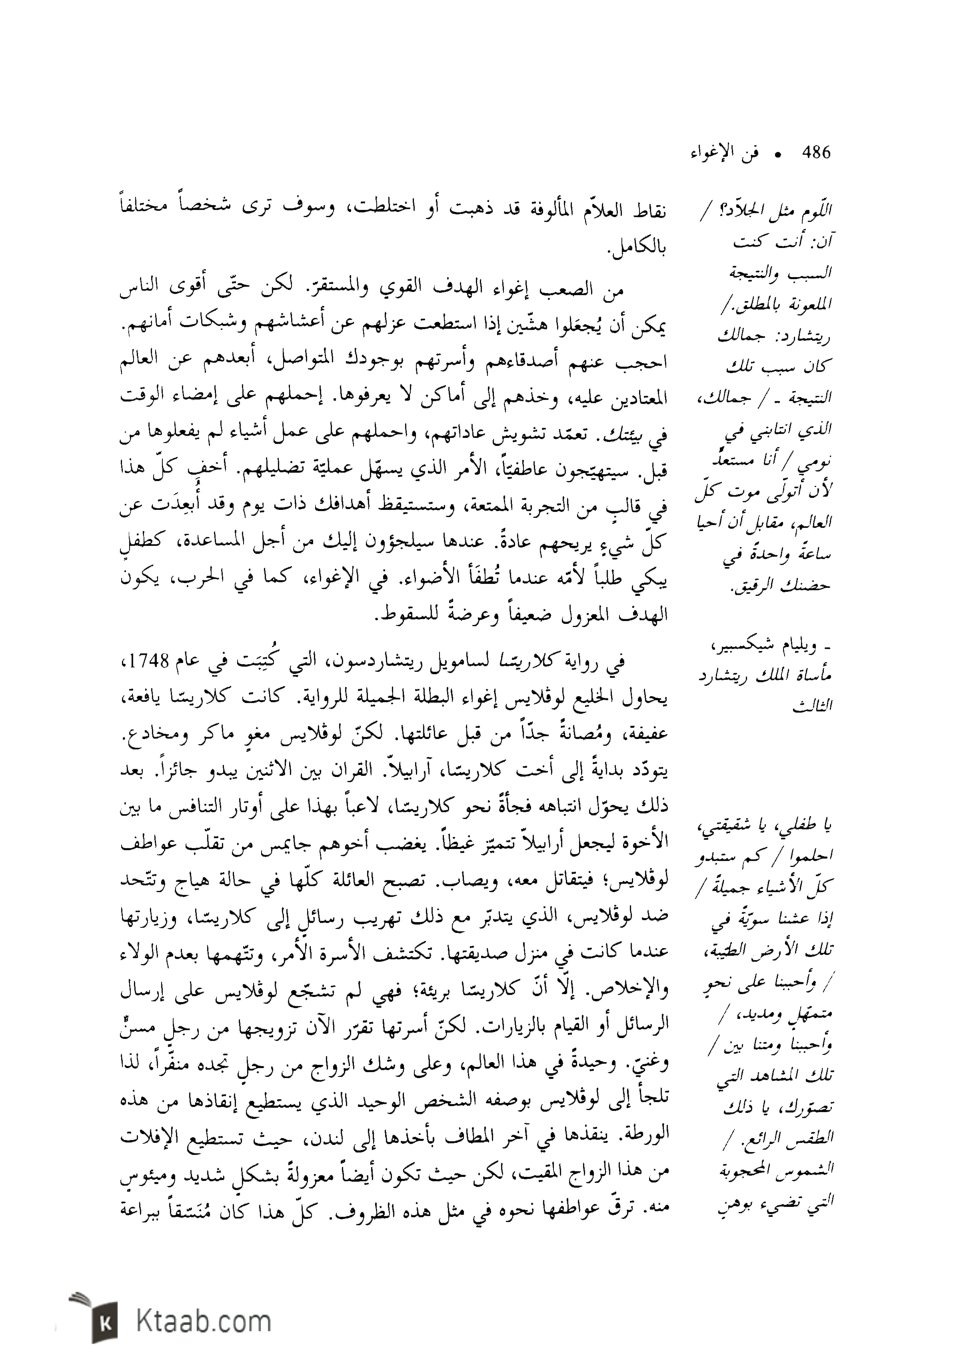 486 • فن الإغواء
نقاط العلاّم المألوفة قد ذهبت أو اختلطت، وسوف ترى شخصاً مختلفاً
بالكامل.
من الصعب إغواء الهدف القوي والمستقرّ. لكن حتّى أقوى الناس
يمكن أن يُجعَلوا هشّين إذا استطعت عزلهم عن أعشاشهم وشبكات أمانهم.
احجب عنهم أصدقاءهم وأسرتهم بوجودك المتواصل، أبعدهم عن العالم
المعتادين عليه، وخذهم إلى أماكن لا يعرفوها. إحملهم على إمضاء الوقت
في بيئتك. تعمّد تشويش عاداتهم، واحملهم على عمل أشياء لم يفعلوها من
قبل. سيتهيّجون عاطفيّاً، الأمر الذي يسهّل عمليّة تضليلهم. أخفِ كلّ هذا
في قالبٍ من التجربة الممتعة، وستستيقظ أهدافك ذات يوم وقد أُبعِدَت عن
كلّ شيءٍ يريحهم عادةً. عندها سيلجؤون إليك من أجل المساعدة، كطفلٍ
يبكي طلباً لأمّه عندما تُطفَأ الأضواء. في الإغواء، كما في الحرب، يكون
الهدف المعزول ضعيفاً وعرضةً للسقوط.
في رواية كلاريسّا لسامويل ريتشاردسون، التي كُتِبَت في عام 1748،
يحاول الخليع لوڤلايس إغواء البطلة الجميلة للرواية. كانت كلاريسّا يافعة،
عفيفة، ومُصانةً جدّاً من قبل عائلتها. لكنّ لوڤلايس مغوٍ ماكر ومخادع.
يتودّد بدايةً إلى أخت كلاريسّا، آرابيلاّ. القران بين الاثنين يبدو جائزاً. بعد
ذلك يحوّل انتباهه فجأةً نحو كلاريسّا، لاعباً بهذا على أوتار التنافس ما بين
الأخوة ليجعل أرابيلاّ تتميّز غيظاً. يغضب أخوهم جايمس من تقلّب عواطف
لوڤلايس؛ فيتقاتل معه، ويصاب. تصبح العائلة كلّها في حالة هياج وتتّحد
ضد لوڤلايس، الذي يتدبّر مع ذلك تهريب رسائلٍ إلى كلاريسّا، وزيارتها
عندما كانت في منزل صديقتها. تكتشف الأسرة الأمر، وتتّهمها بعدم الولاء
والإخلاص. إلّا أنّ كلاريسّا بريئة؛ فهي لم تشجّع لوڤلايس على إرسال
الرسائل أو القيام بالزيارات. لكنّ أسرتها تقرّر الآن تزويجها من رجلٍ مسنٍّ
وغنيّ. وحيدةً في هذا العالم، وعلى وشك الزواج من رجلٍ تجده منفّراً، لذا
تلجأ إلى لوڤلايس بوصفه الشخص الوحيد الذي يستطيع إنقاذها من هذه
الورطة. ينقذها في آخر المطاف بأخذها إلى لندن، حيث تستطيع الإفلات
من هذا الزواج المقيت، لكن حيث تكون أيضاً معزولةً بشكلٍ شديد وميئوسٍ
منه. ترقّ عواطفها نحوه في مثل هذه الظروف. كلّ هذا كان مُنَسّقاً ببراعة
اللّوم مثل الجلاّد؟ /
آن: أنت كنت
السبب والنتيجة
الملعونة بالمطلق./
ريتشارد: جمالك
كان سبب تلك
النتيجة ـ / جمالك،
الذي انتابني في
نومي / أنا مستعدٌّ
لأن أتولّى موت كلّ
العالم، مقابل أن أحيا
ساعةً واحدةً في
حضنك الرقيق.
ـ ويليام شيكسبير،
مأساة الملك ريتشارد
الثالث
يا طفلي، يا شقيقتي،
احلموا / كم ستبدو
كلّ الأشياء جميلةً /
إذا عشنا سويّةً في
تلك الأرض الطيّبة،
/ وأحببنا على نحوٍ
متمهّلٍ ومديد، /
وأحببنا ومتنا بين /
تلك المشاهد التي
تصوّرك، يا ذلك
الطقس الرائع. /
الشموس المحجوبة
التي تضيء بوهنٍ
K Ktaab.com